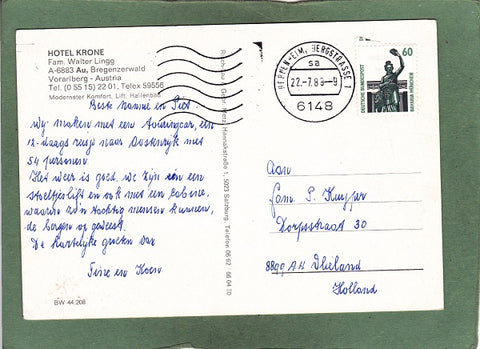 HOTEL KRONE
Fam. Walter Lingg
A-6883 Au, Bregenzerwald
Vorarlberg - Austria
Tel. (0 55 15) 22 01, Telex 59556
Modernster Komfort, Lift, Hallenbad
Beste Nannie en Piet.
Wij maken met een touringcar, een
12-daags reisje naar Oostenrijk met
54 personen.
Het weer is goed. we zijn een een
stoeltjeslift en ook met een cabine,
waarin zo'n tachtig mensen kunnen,
de bergen op geweest.
De hartelijke groeten van
Tine en Koen
BW 44 206
5023 Salzburg, Telefon 06 62
HEPPENHEIM, BERGSTRASSE 1
sa
22.-7.89--9
6148
60
DEUTSCHE BUNDESPOST
BAVARIA MÜNCHEN
Aan
fam P. Kuyper
Dorpsstraat 30
8899 AH Vlieland
Holland